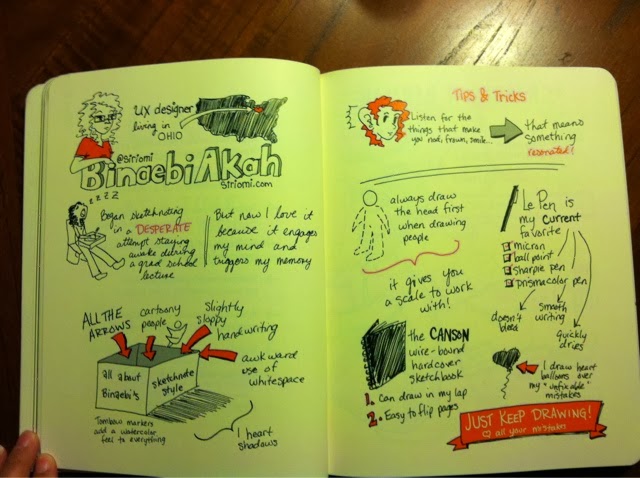 UX designer
living in
OHIO
@Siriomi
Binaebi Akah
Siriomi.com
zzzz
Began sketchnoting
in a DESPERATE
attempt staying
awake during
a grad school
lecture
But now I love it
because it engages
my mind and
triggers my memory
ALL THE
ARROWS
cartoony
people
Slightly
sloppy
handwriting
awkward
use of
whitespace
all about
Binaebi's
sketchnote
style
Tombow markers
add a watercolor
feel to everything
I heart
shadows
Tips & Tricks
Listen for the
things that make
you nod, frown, smile...
that means
something
resonated!
always draw
the head first
when drawing
people
it gives you
a scale to work
with!
Le Pen is
my current
favorite
micron
ball point
sharpie pen
prismacolor pen
doesn't
bleed
smooth
writing
quickly
dries
the CANSON
wire-bound
hardcover
sketchbook
1. Can draw in my lap
2. Easy to flip pages
I draw heart
balloons over
my "unfixable"
mistakes
JUST KEEP DRAWING!
♡ all your mistakes